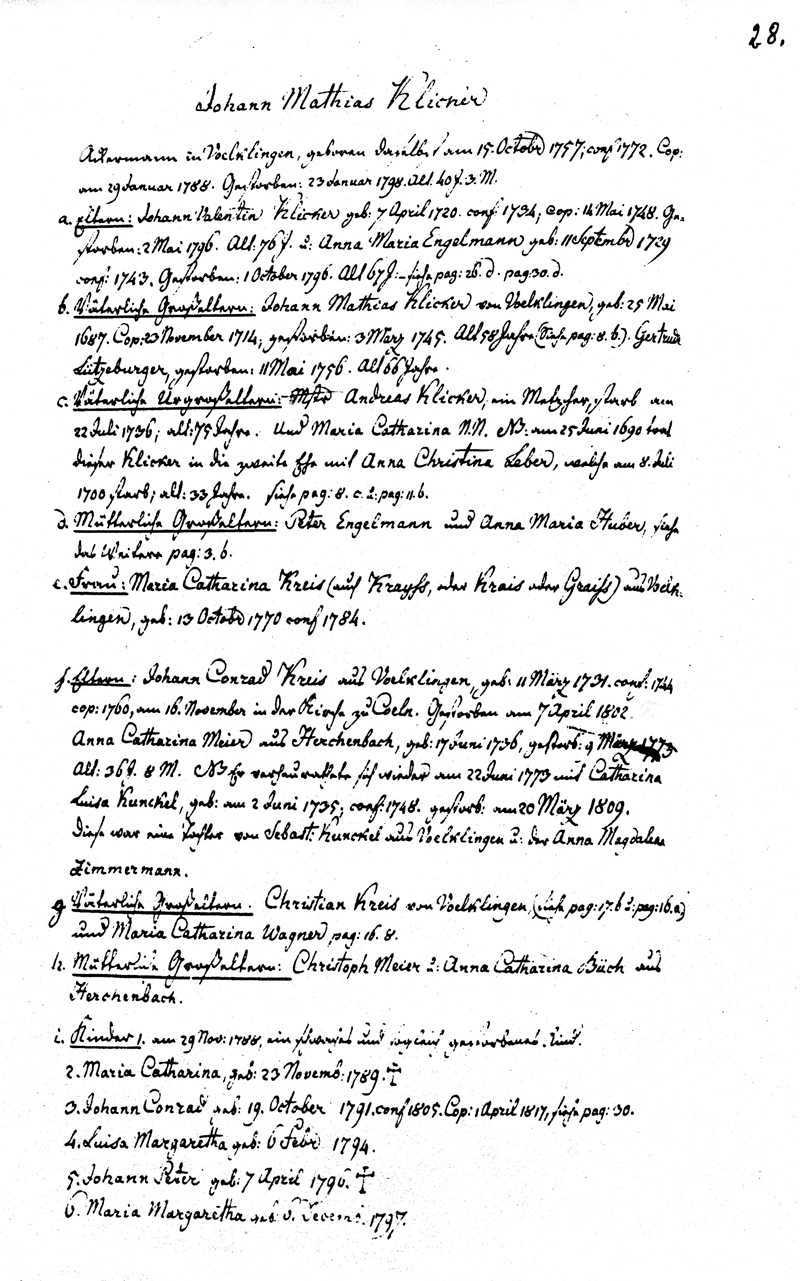 28.
Johann Mathias Klicker
Ackermann in Voelklingen, geboren daselbst am 15. Octobr 1757; conf. 1772. Cop:
am 29 Januar 1788. Gestorben: 23 Januar 1798. Alt. 40 J. 3. M.
a. Eltern: Johann Valentin Klicker geb: 7 April 1720. conf. 1734; cop: 14 Mai 1748. Ge-
storben: 2 Mai 1796. Alt: 76 J. u: Anna Maria Engelmann geb: 11 Septembr 1729
conf: 1743. Gestorben: 1 October 1796. Alt 67 J: – siehe pag: 26. d. pag: 30. d.
b. Väterliche Großeltern: Johann Mathias Klicker von Voelklingen, geb: 25 Mai
1687. Cop: 23 November 1714; gestorben: 3 März 1745. Alt 58 Jahre (Siehe pag: 8. b.). Gertrud
Lützeburger, gestorben: 11 Mai 1756. Alt 66 Jahre.
c. Väterliche Urgroßeltern: Mstr Andreas Klicker, ein Metzcher, starb am
22 Juli 1736; alt: 75 Jahre. Und Maria Catharina N.N. NB: am 25 Juni 1690 trat
dieser Klicker in die zweite Ehe mit Anna Christina Leber, welche am 8. Juli
1700 starb; alt: 33 Jahre. siehe pag: 8. c. u: pag: 11. b.
d. Mütterliche Großeltern: Peter Engelmann und Anna Maria Huber, siehe
das Weitere pag: 3. b.
e. Frau: Maria Catharina Kreis (auch Krayss, oder Krais oder Graiss) aus Voelk-
lingen, geb: 13 Octobr 1770 conf 1784.
f. Eltern: Johann Conrad Kreis aus Voelklingen, geb: 11 März 1731. conf: 1744
cop: 1760, am 16. November in der Kirche zu Coeln. Gestorben am 7 April 1802.
Anna Catharina Meier aus Herchenbach, geb: 17 Juni 1736, gestorb: 9 März 1773
Alt: 36 J. 8 M. NB Er verheuratete sich wieder am 22 Juni 1773 mit Catharina
Luisa Kunckel, geb: am 2 Juni 1735; conf: 1748. gestorb: am 20 März 1809.
Diese war eine Tochter von Sebast: Kunckel aus Voelklingen u: der Anna Magdalena
Zimmermann.
g. Väterliche Großeltern. Christian Kreis von Voelklingen, (siehe pag: 17. b u: pag: 16. a)
und Maria Catharina Wagner, pag: 16. 8.
h. Mütterliche Großeltern: Christoph Meier u: Anna Catharina Büch aus
Herchenbach.
i. Kinder 1. am 29 Nov: 1788, ein und gestorbenes Kind.
2. Maria Catharina, geb: 23 Novemb: 1789. ✝
3. Johann Conrad geb: 19. October 1791. conf 1805. Cop: 1 April 1817, siehe pag: 30.
4. Luisa Margaretha geb: 6 Febr 1794.
5. Johann Peter geb: 7 April 1796. ✝
6. Maria Margaretha geb: 1797.